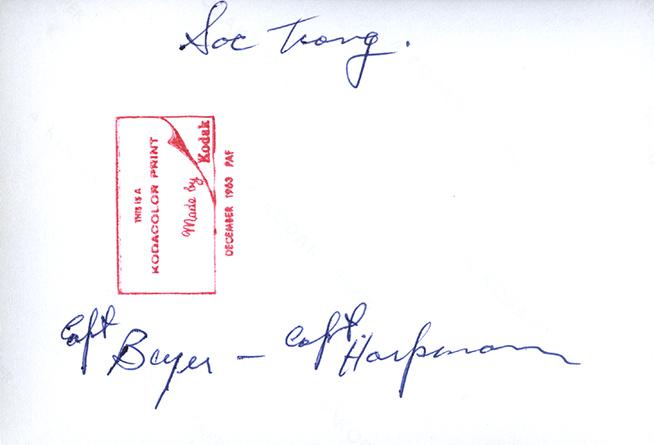 Soc Trang.
THIS IS A
KODACOLOR PRINT
Made by
Kodak
DECEMBER 1963 PAF
Capt Beyer - Capt. Harpmann